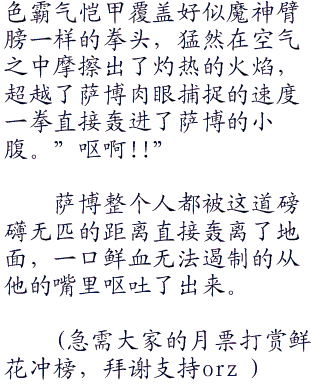 色霸气恺甲覆盖好似魔神臂
膀一样的拳头，猛然在空气
之中摩擦出了灼热的火焰，
超越了萨博肉眼捕捉的速度
一拳直接轰进了萨博的小
腹。”呕啊!!”
萨博整个人都被这道磅
礴无匹的距离直接轰离了地
面，一口鲜血无法遏制的从
他的嘴里呕吐了出来。
(急需大家的月票打赏鲜
花冲榜，拜谢支持orz )